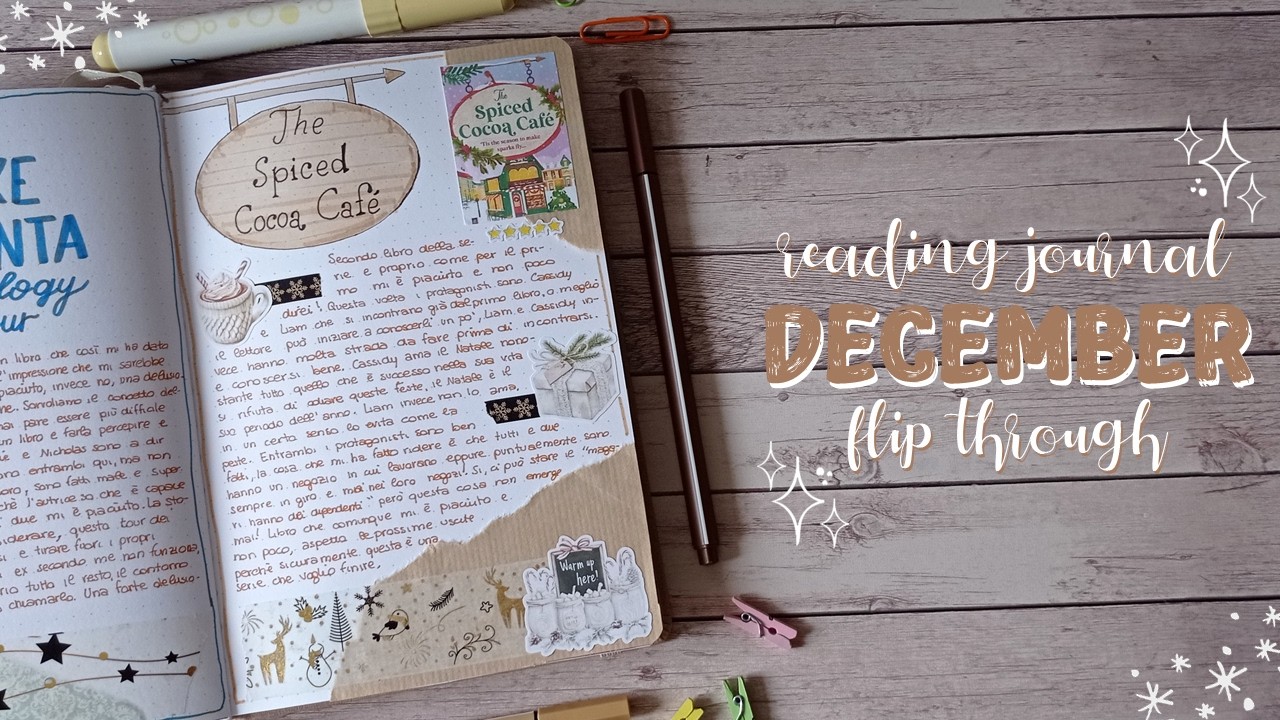 KE
NTA
logy
our
n libro che così mi ha dato
l'impressione che mi sarebbe
piaciuto, invece no, una delusio-
ne.
pare essere più difficile
un libro e farla percepire e
e Nicholas sono a dir
ono entrambi qui, ma non
oro, sono fatti male e super
l'autrice so che è capace
due mi è piaciuto. La sto-
siderare, questo tour dei
si e tirare fuori i propri
ex secondo me non funziona,
rio tutto il resto, il contorno
chiamarlo. Una forte delusio-
The
Spiced
Cocoa Café
The
Spiced
Cocoa Café
'Tis the season to make
sparks fly...
Secondo libro della se-
rie e proprio come per il pri-
mo mi è piaciuto e non poco
direi! Questa volta i protagonisti sono Cassidy
e Liam che si incontrano già dal primo libro, o meglio
il lettore può iniziare a conoscerli un po', Liam e Cassidy in-
vece hanno molta strada da fare prima di incontrarsi
e conoscersi bene. Cassidy ama il Natale nono-
stante tutto quello che è successo nella sua vita
si rifiuta di odiare queste feste, il Natale è il
suo periodo dell'anno. Liam invece non lo ama,
in un certo senso lo evita come la
peste. Entrambi i protagonisti sono ben
fatti, la cosa che mi ha fatto ridere è che tutti e due
hanno un negozio in cui lavorano eppure puntualmente sono
sempre in giro e mai nei loro negozi! Si, ci può stare il "maga-
ri hanno dei dipendenti" però questa cosa non emerge
mai! Libro che comunque mi è piaciuto e
non poco, aspetto le prossime uscite
perchè sicuramente questa è una
serie che voglio finire.
Warm up
here!
reading journal
DECEMBER
flip through